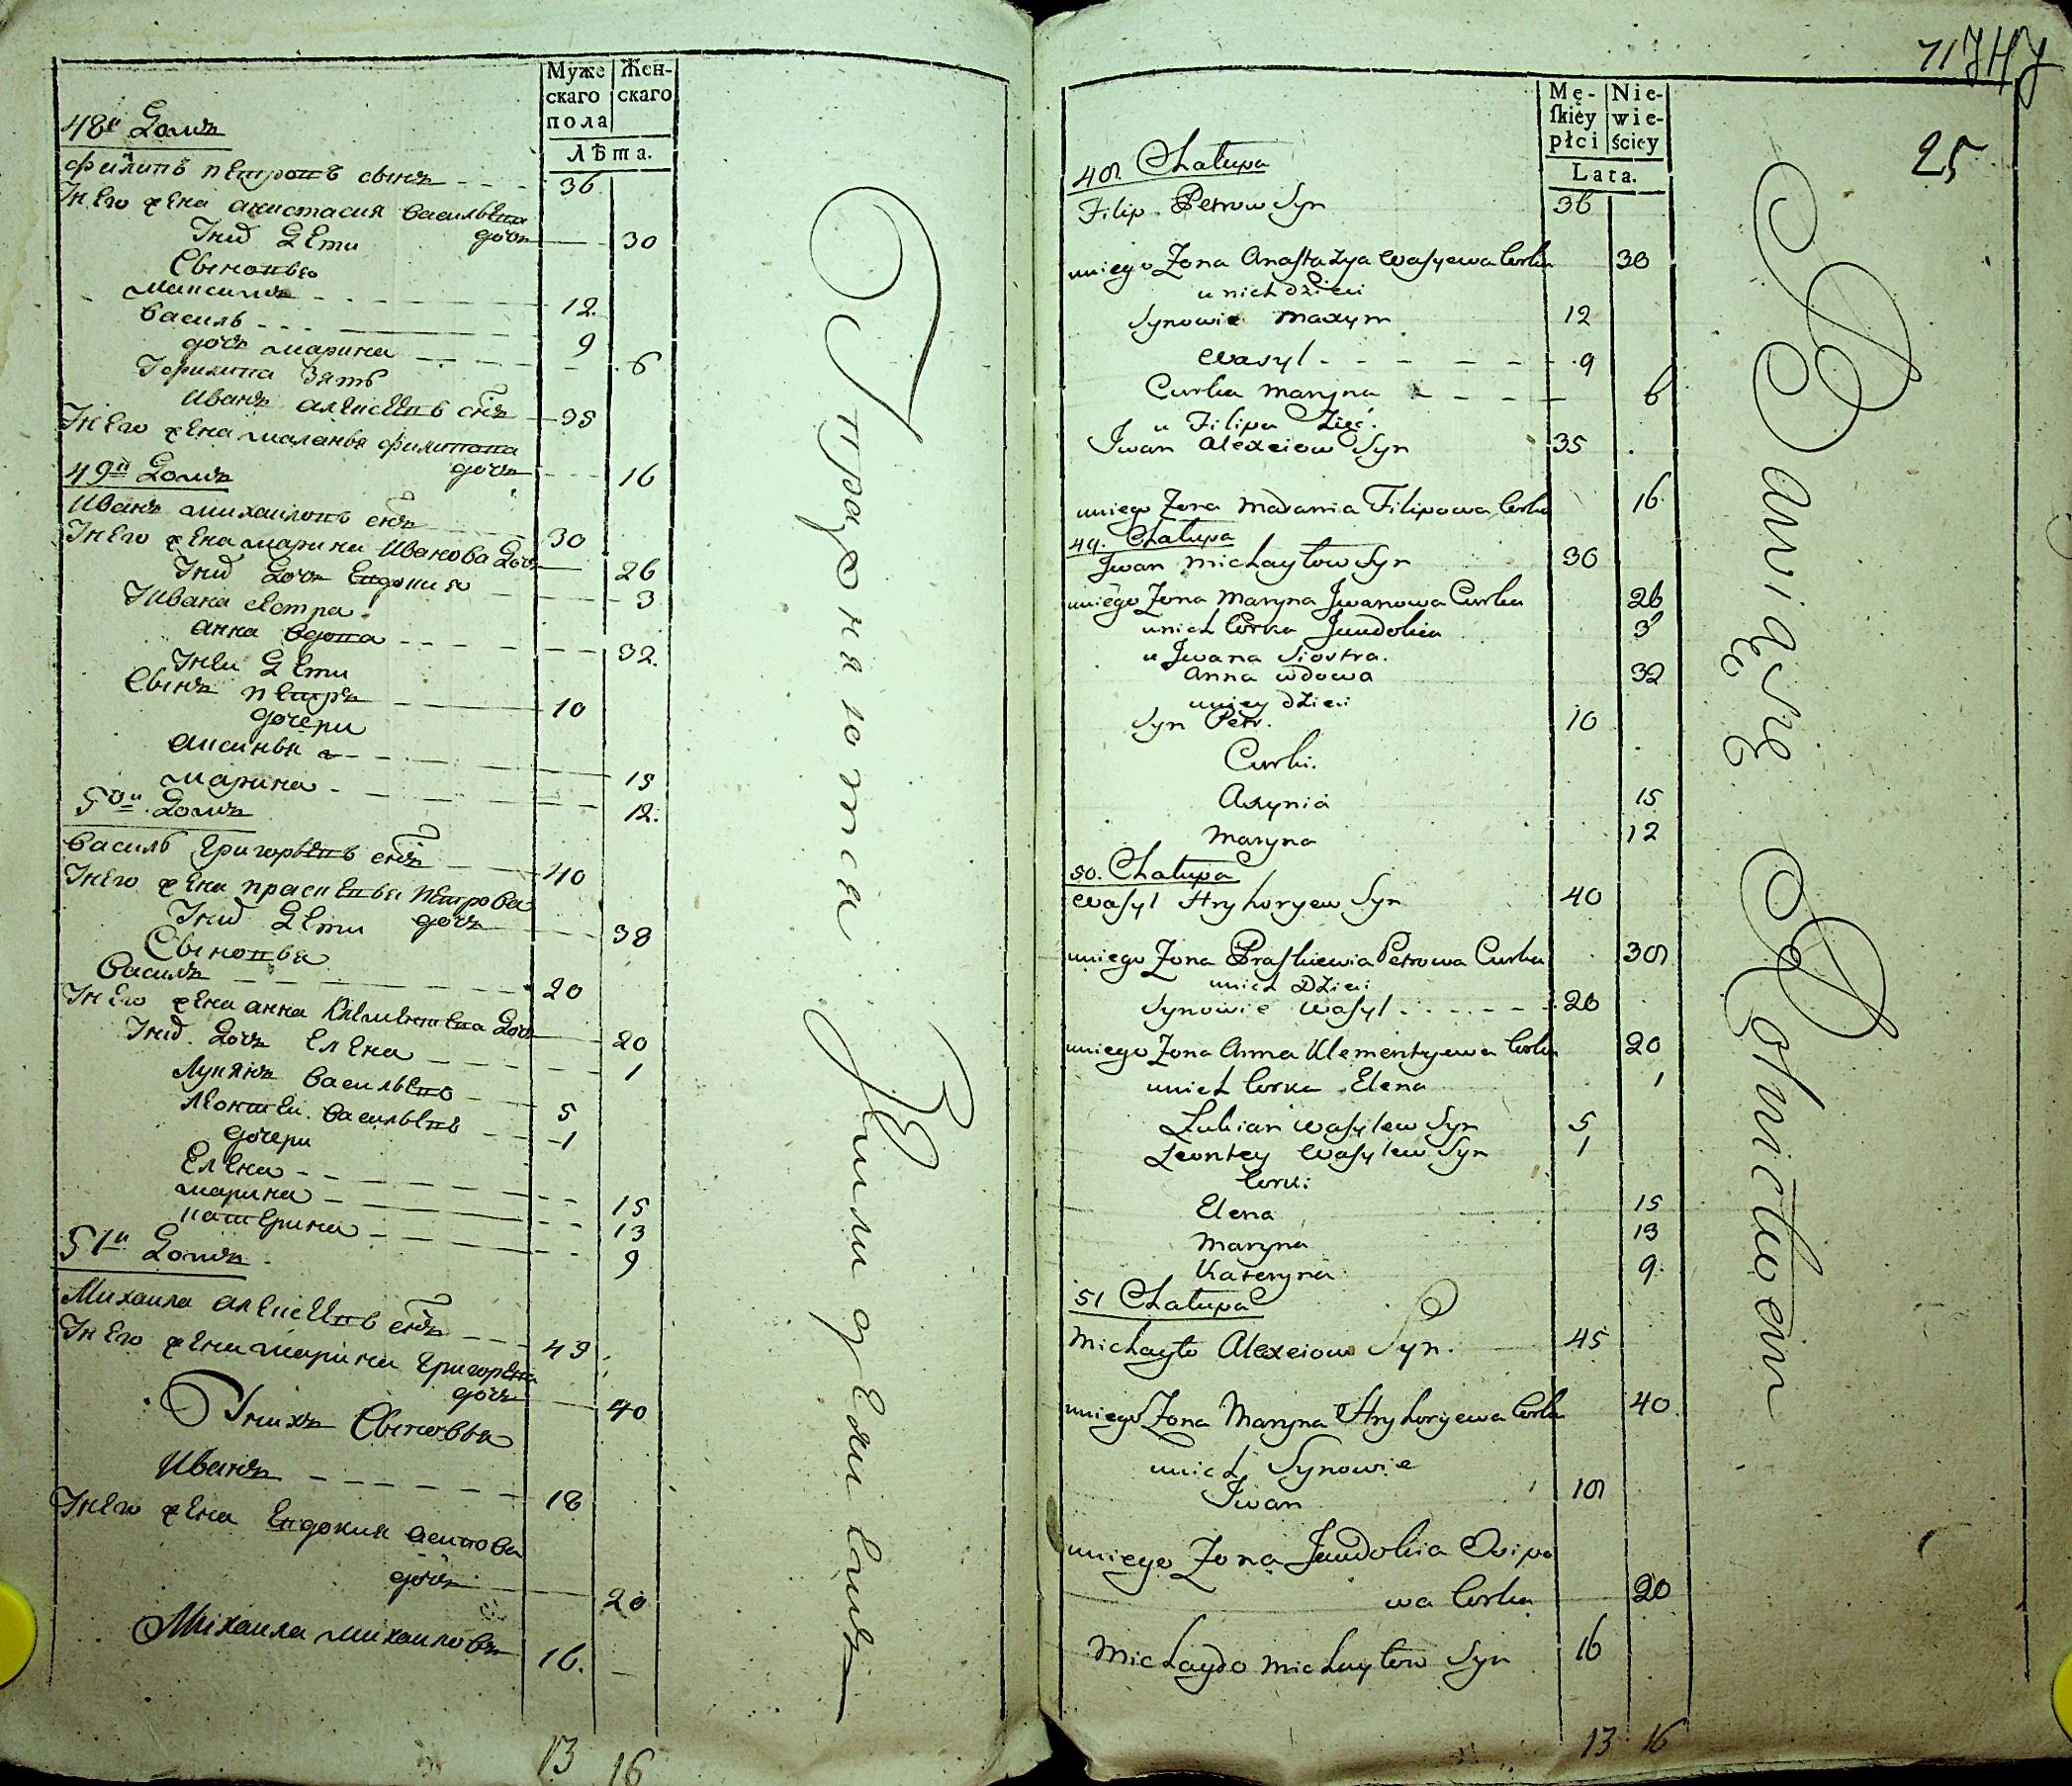 Муже
скаго
пола
Жен-
скаго
Лѣта.
48й Домъ
Филипъ петровъ сынъ - - - 36
Унего жена анистасия васильева
дочь — 30
Унид дети
Сыновья
Максимъ - - - 12.
Василь - - - 9
дочь марина - - - 6
Уфилипа зять
Иванъ алексеевъ снъ — 35
Унего жена маланья филипова
дочь - - 16
49й Домъ
Иванъ михаиловъ снъ 30
Унего жена марина Иванова дочь — 26
Унид дочь Евдокия - - - 3
Уивана сестра
анна вдова - - - 32.
Уней дети
Сынъ петръ - - - 10
дочери
аксинья - - - 15
марина - - - 12.
50й Домъ
Василь григорьевъ снъ — 40
Унего жена прасковья петрова
дочь 38
Унид дети
Сыновья
Василь - - - 20
Унего жена анна Климентева дочь — 20
Унид. дочь елена - - - 1
Лукянъ васильевъ - - 5
Леонтей. васильевъ - - 1
дочери
Елена - - - 15
марина - - - 13
катерина - - - 9
51й Домъ
Михаила алексеевъ снъ - - 45
Унего жена марина григорева
дочь — 40
Унихъ Сыновья
Иванъ - - - 18
Унего жена Евдокия осипова
дочь — 20
Михаила михаиловъ 16. —
13 16
Праздняются Земли делениемъ
71
25
Mę-
ſkiéy
płci
Nie-
wie-
ściey
Lata.
48. Chałupa
Filip Petrow Syn 36
uniego Zona Anastazya Wasyewa Corka 30
unich dzieci
Synowie Maxym 12
Wasyl - - - 9
Curka Maryna - - - 6
u Filipa Zięć.
Jwan Alexeiow Syn 35
uniego Zona Małania Filipowa Corka 16
49. Chałupa
Jwan Michayłow Syn 30
uniego Zona Maryna Jwanowa Curka 26
unich Corka Jewdokia 3
u Jwana Siostra.
Anna wdowa 32
uniey dzieci
Syn Petr. 10
Curki.
Axynia 15
Maryna 12
50. Chałupa
Wasyl Hryhoryew Syn 40
uniego Zona Praskiewia Petrowa Curka 38
unich Dzieci
Synowie Wasyl - - - 20
uniego Zona Anna Klementyewa Corka 20
unich Corka Elena 1
Łukian Wasylew Syn 5
Leontey Wasylew Syn 1
Corki
Elena 15
Maryna 13
Kateryna 9
51 Chałupa
Michayło Alexeiow Syn. 45
uniego Zona Maryna Hryhoryewa Corka 40
unich Synowie
Jwan 18
uniego Zona Jewdokia Osipo
wa Corka 20
Michayło Michayłow Syn 16
13 16
Bawią się Rolnictwem